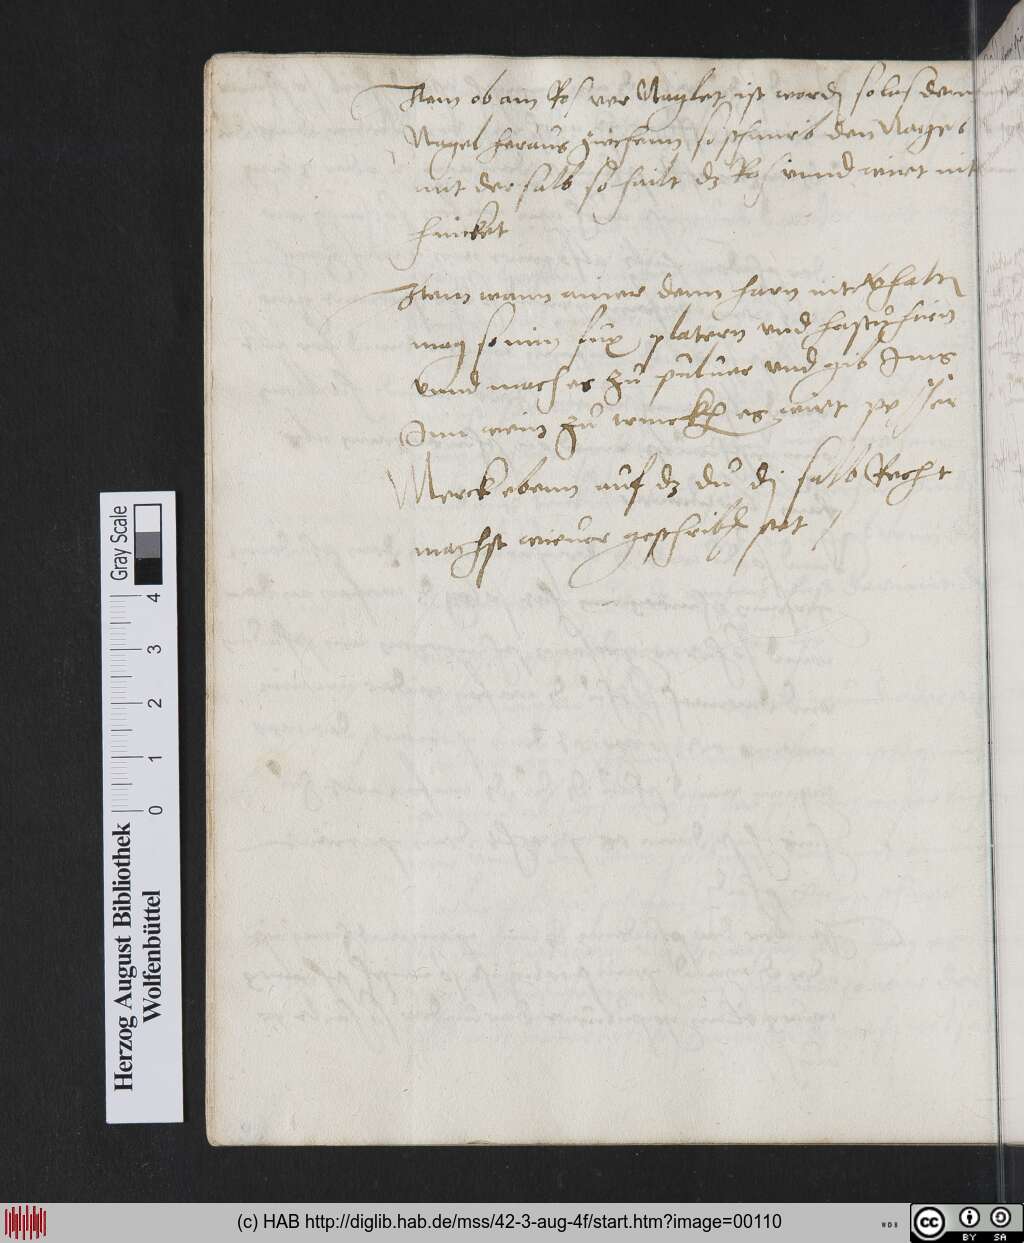 Item ob ain Ros ver Naglet ist word so las dem
Nagel heraus ziechenn so schmirb den Nagel
mit der salb so hailt dz Ros vnnd wirt nit
hincket
Item wann ainer denn harn nit phaltn
mag so nim fux platern vnd hasn hirn
vnnd mach es zů puluer vnd gib Ims
Inn wein zů trincken es wirt pesser
Merck ebenn auf dz dů di salb Recht
machst wie vor geschriben stat /
Gray Scale
0 1 2 3 4
Herzog August Bibliothek
Wolfenbüttel
(c) HAB http://diglib.hab.de/mss/42-3-aug-4f/start.htm?image=00110
WDB
cc BY SA